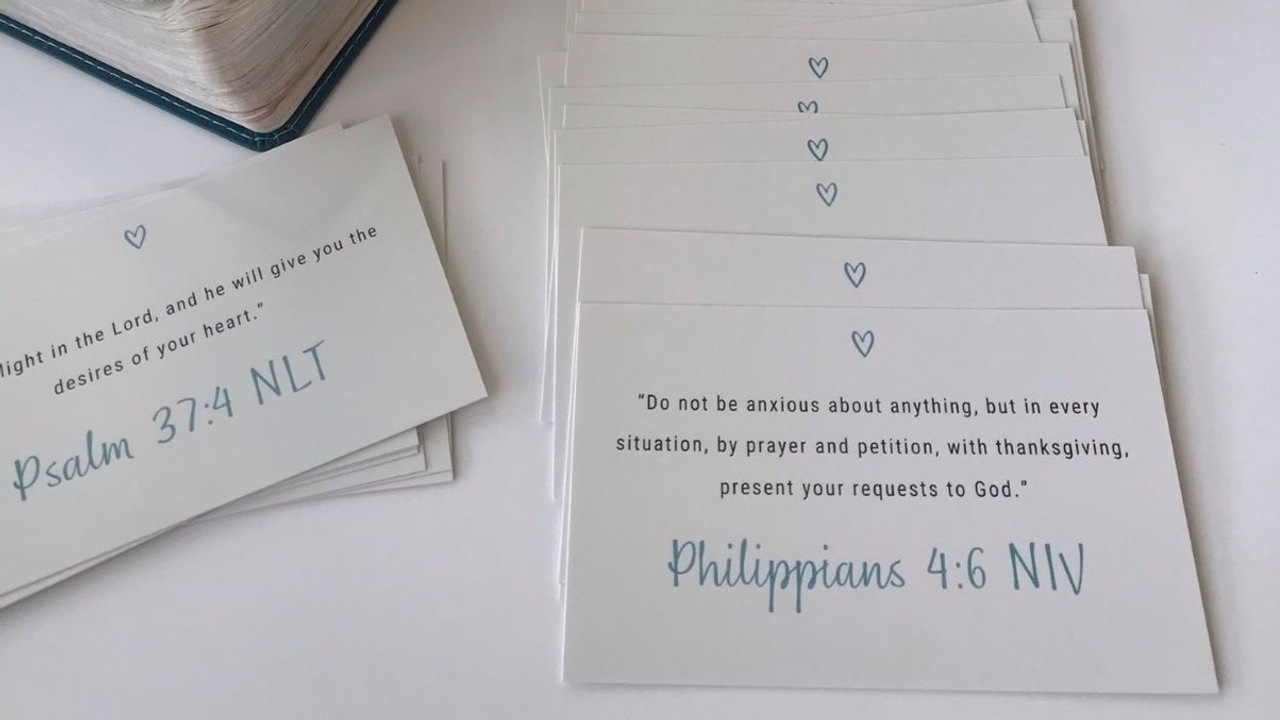 in the Lord, and he will give you the
desires of your heart.”
Psalm 37:4 NLT
“Do not be anxious about anything, but in every
situation, by prayer and petition, with thanksgiving,
present your requests to God.”
Philippians 4:6 NIV